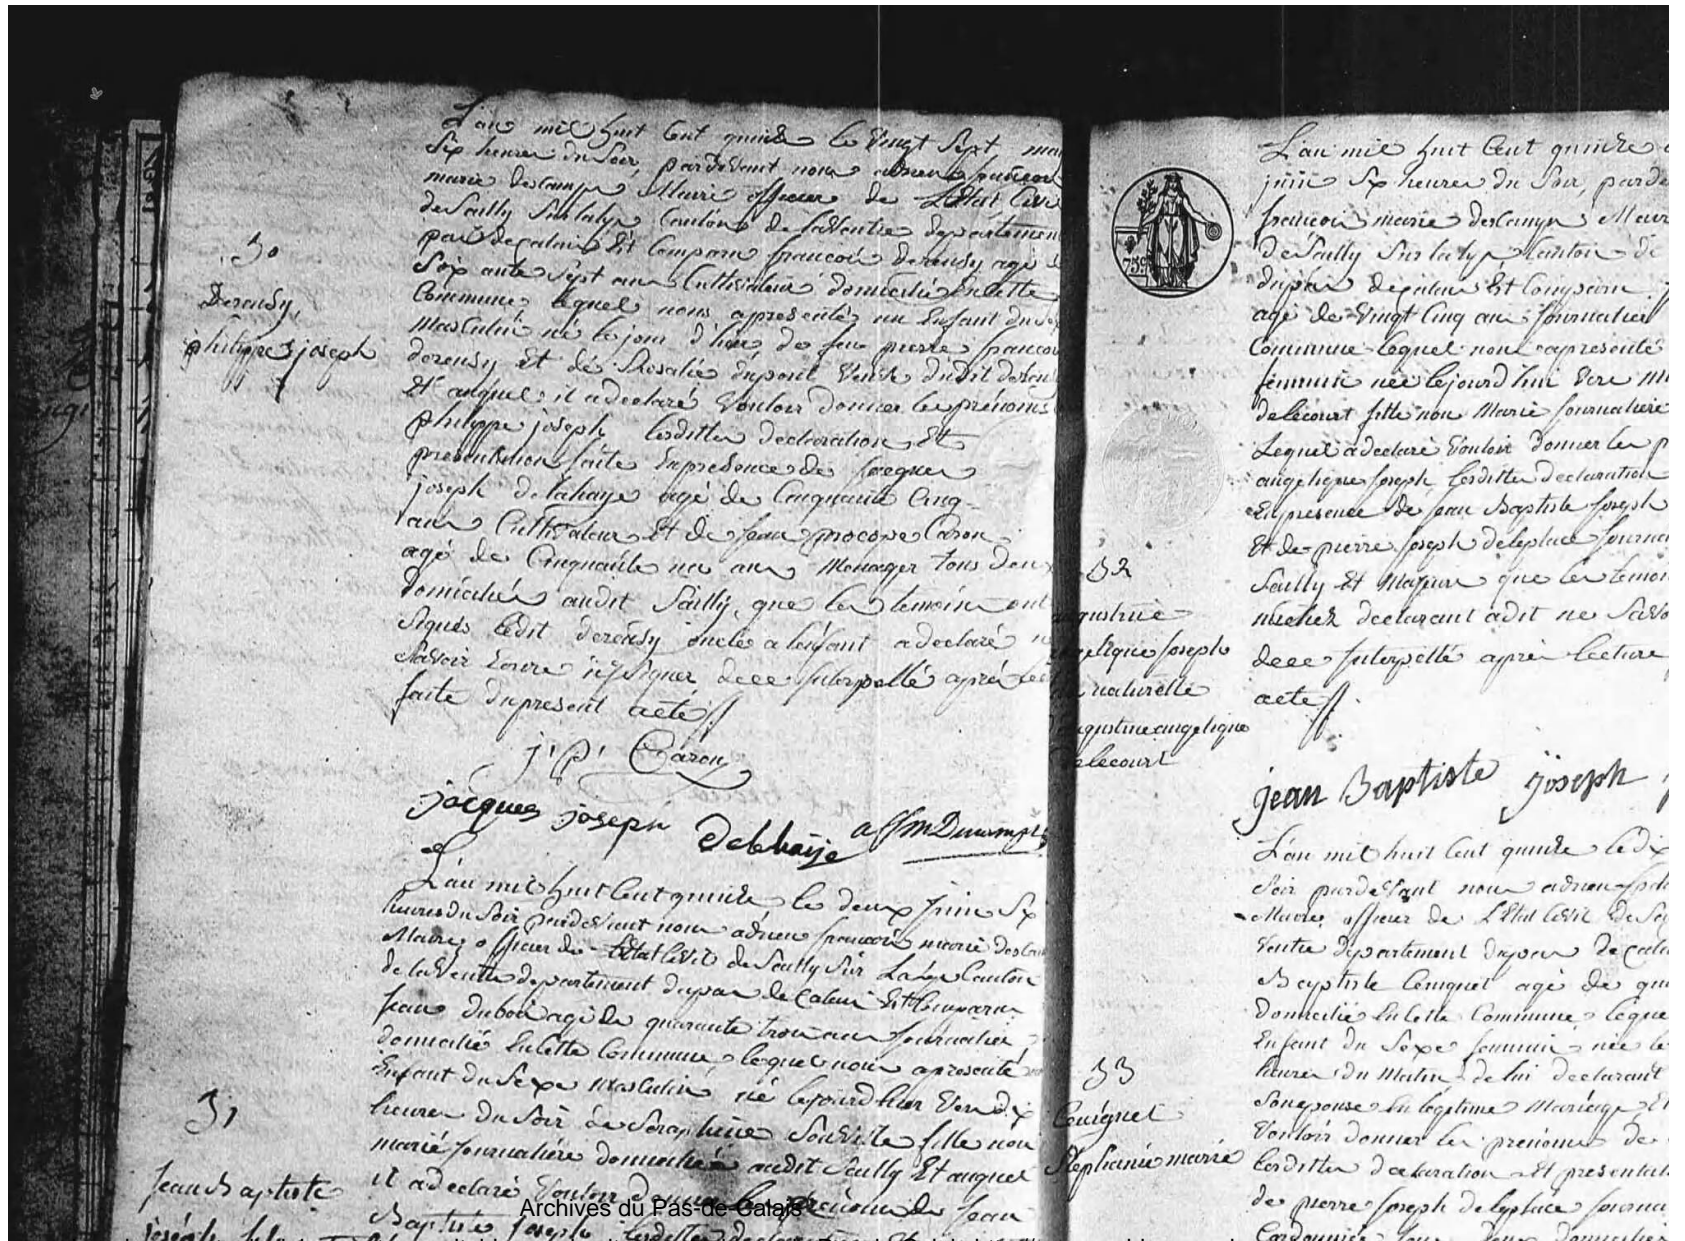 L'an mil huit Cent quinze le Vingt Sept mai
Six heures du Soir, pardevant nous adrien francois
marie descamps Maire officier de L'Etat Civil
de Sailly Sur la lys Canton de laVentie departement
pas de calais Est Comparu francois derensy agé de
Soixante Sept ans Cultivateur domicilié en cette
Commune lequel nous apresenté un Enfant du Sexe
Masculin né le jour d'hier, de feu pierre francois
derensy et de Rosalie dupont Veuve dudit derensy
Et auquel il adeclaré Vouloir donner les prénoms
philippe joseph lesdittes declaration Et
presentation faite Enpresence de Jacques
joseph delahaye agé de Cinquante Cinq
ans Cultivateur Et de Jean procope Caron
agé de Cinquante un ans Menager tous deux
domiciliés audit Sailly, que les temoins ont
Signés ledit derensy oncle a lenfant adeclaré ne
Savoir Ecrire ni Signer dece Interpellé après lecture
faite dupresent acte
30
Derensy,
philippe joseph
j. p. Caron
jacques joseph Delehaije
L'an mil huit Cent quinze le deux juin Six
heures du Soir pardevant nous adrien francois marie descamps
Maire, officier de L'Etat Civil de Sailly Sur La lys Canton
de laVentie departement dupas de Calais Est Comparu
Jean dubois agé de quarante trois ans Journalier
domicilié Encette Commune lequel nous apresenté un
Enfant du Sexe Masculin né lejourdhier Vers dix
heures du Soir de Seraphine fille non
mariée Journalière domiciliée audit Sailly Et auquel
il adeclaré Vouloir donner les prénoms de Jean
Baptiste Joseph lesdittes declaration
31
Jean Baptiste
joseph
L'an mil huit Cent quinze
juin Six heures du Soir, parde
francois marie descamps Maire
de Sailly Sur la lys Canton de
dupas de calais Est Comparu
agé de Vingt Cinq ans Journalier
Commune lequel nous apresenté
feminin née lejourd'hui Vers
delecourt fille non Mariée Journaliere
Lequel adeclaré Vouloir donner les p
angelique Joseph, lesdittes declaration
Enpresence de Jean Baptiste Joseph
Et de pierre Joseph deleplace Journa
Sailly Et Majeurs que les temoin
declarant adit ne Savo
dece Interpellé après lecture
acte
32
augustine
angelique Joseph
naturelle
augustine angelique
delecourt
739
jean Baptiste joseph
L'an mil huit Cent quinze le dix
Soir pardevant nous adrien
Maire, officier de L'Etat Civil de Sa
Ventie departement dupas de Cala
Baptiste Cuignet agé de qua
domicilié Encette Commune leque
Enfant du Sexe feminin née le
heures du Matin de lui declarant
Son epouse En légitime Mariage Et
Vouloir donner les prenoms de
lesdittes declaration Et presentat
de pierre Joseph deleplace Journa
Cordonnier tous deux domiciliés
33
Cuignet
Stephanie marie
Archives du Pas-de-Calais